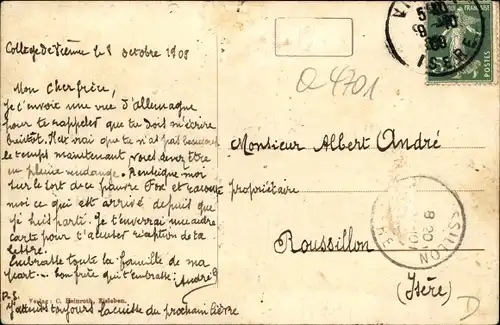 Collège de Vienne le 8 octobre 1909
Mon cher frère,
Je t'envoie une vue d'allemagne
pour te rappeler que tu dois m'écrire
bientôt. Il est vrai que tu n'as pas beaucoup
le temps maintenant vous devez être
en pleine vendange. Renseigne moi
sur le sort de ce pauvre Fox et raconte
moi ce qui est arrivé depuis que
je suis parti. Je t'enverrai une autre
carte pour t'accuser réception de ta
lettre.
Embrasse toute la famille de ma
part. Ton frère qui t'embrasse: André
P.S.
J'attends toujours la cuisse du prochain lièvre
Verlag: C. Heinroth, Eisleben.
Q 4701
Monsieur Albert André
propriétaire
Roussillon
(Isère)
ISERE
POSTES
SSILLON
8-20
D